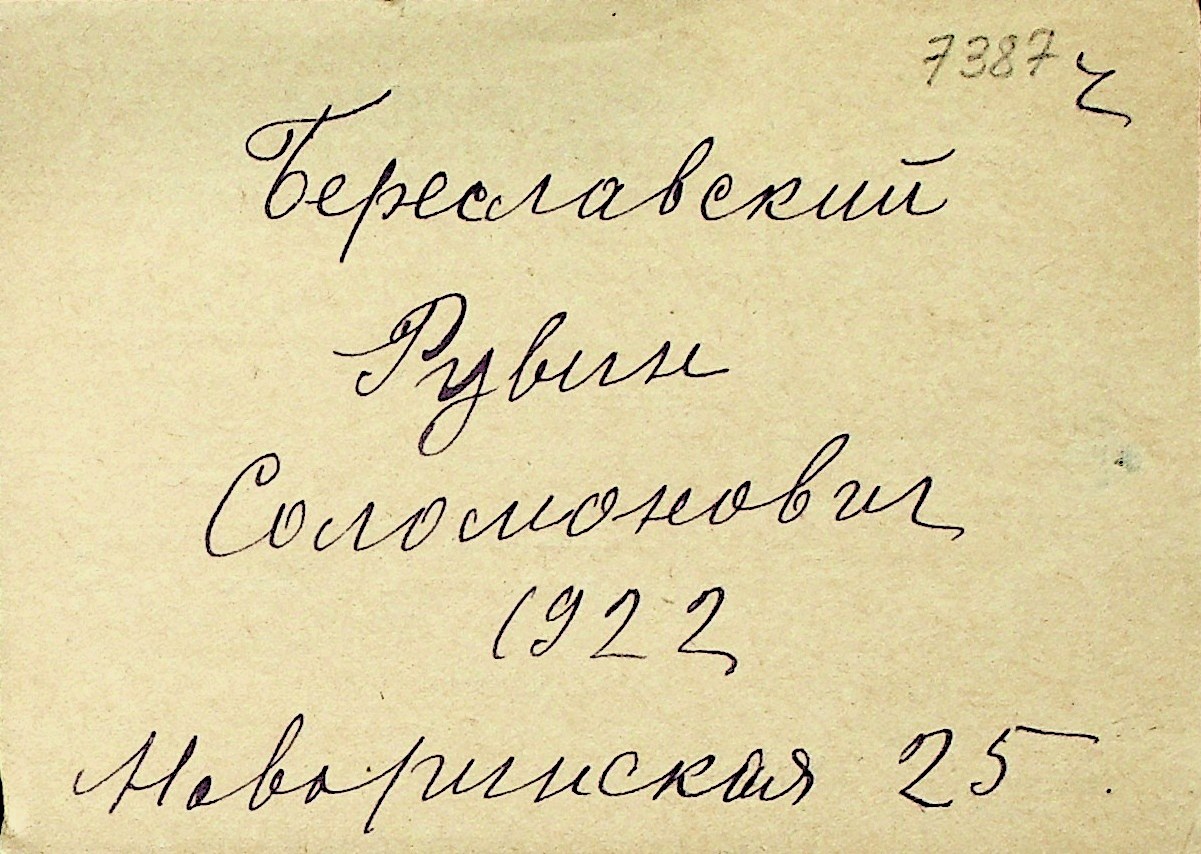 7387 ч
Береславский
Рувин
Соломонович
1922
Новоринская 25.